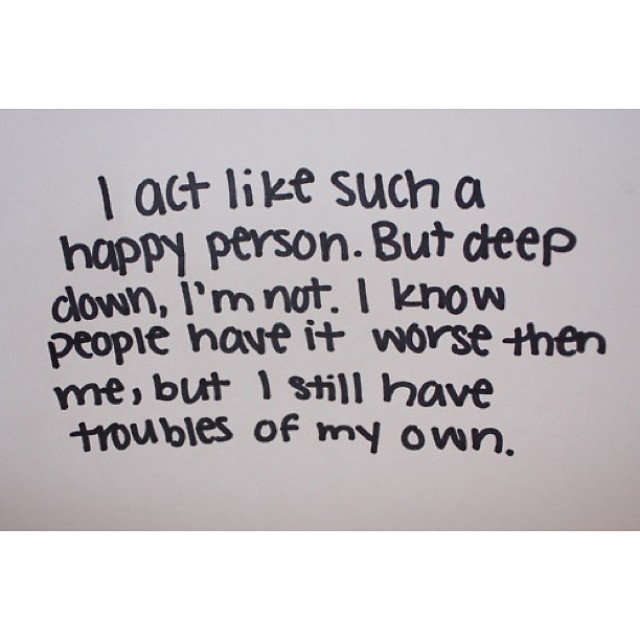 I act like such a
happy person. But deep
down, I'm not. I know
people have it worse then
me, but I still have
troubles of my own.